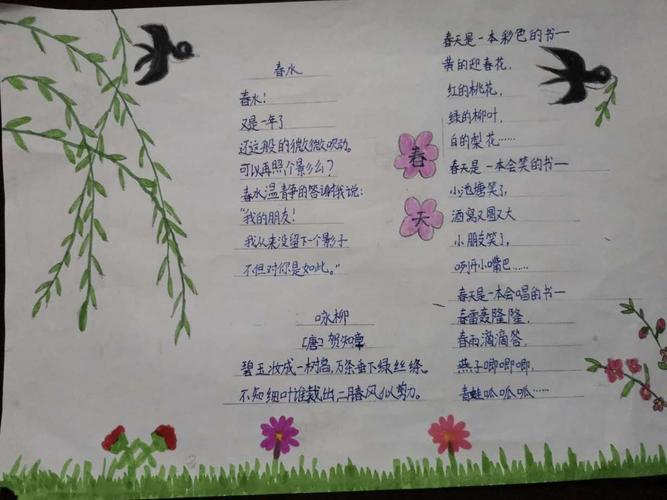 春水
春水!
又是一年了
还这般的微微吹动。
可以再照个影么?
春水温静的答谢我说:
“我的朋友!
我从来没留下一个影子
不但对你是如此。”
咏柳
[唐]贺知章
碧玉妆成一树高,万条垂下绿丝绦。
不知细叶谁裁出二月春风似剪刀。
春天
春天是一本彩色的书一
黄的迎春花,
红的桃花,
绿的柳叶,
白的梨花……
春天是一本会笑的书一
小池塘笑了,
酒窝又圆又大
小朋友笑了,
咧开小嘴巴……
春天是一本会唱的书一
春雷轰隆隆,
春雨滴滴答,
燕子唧唧唧,
青蛙呱呱呱……